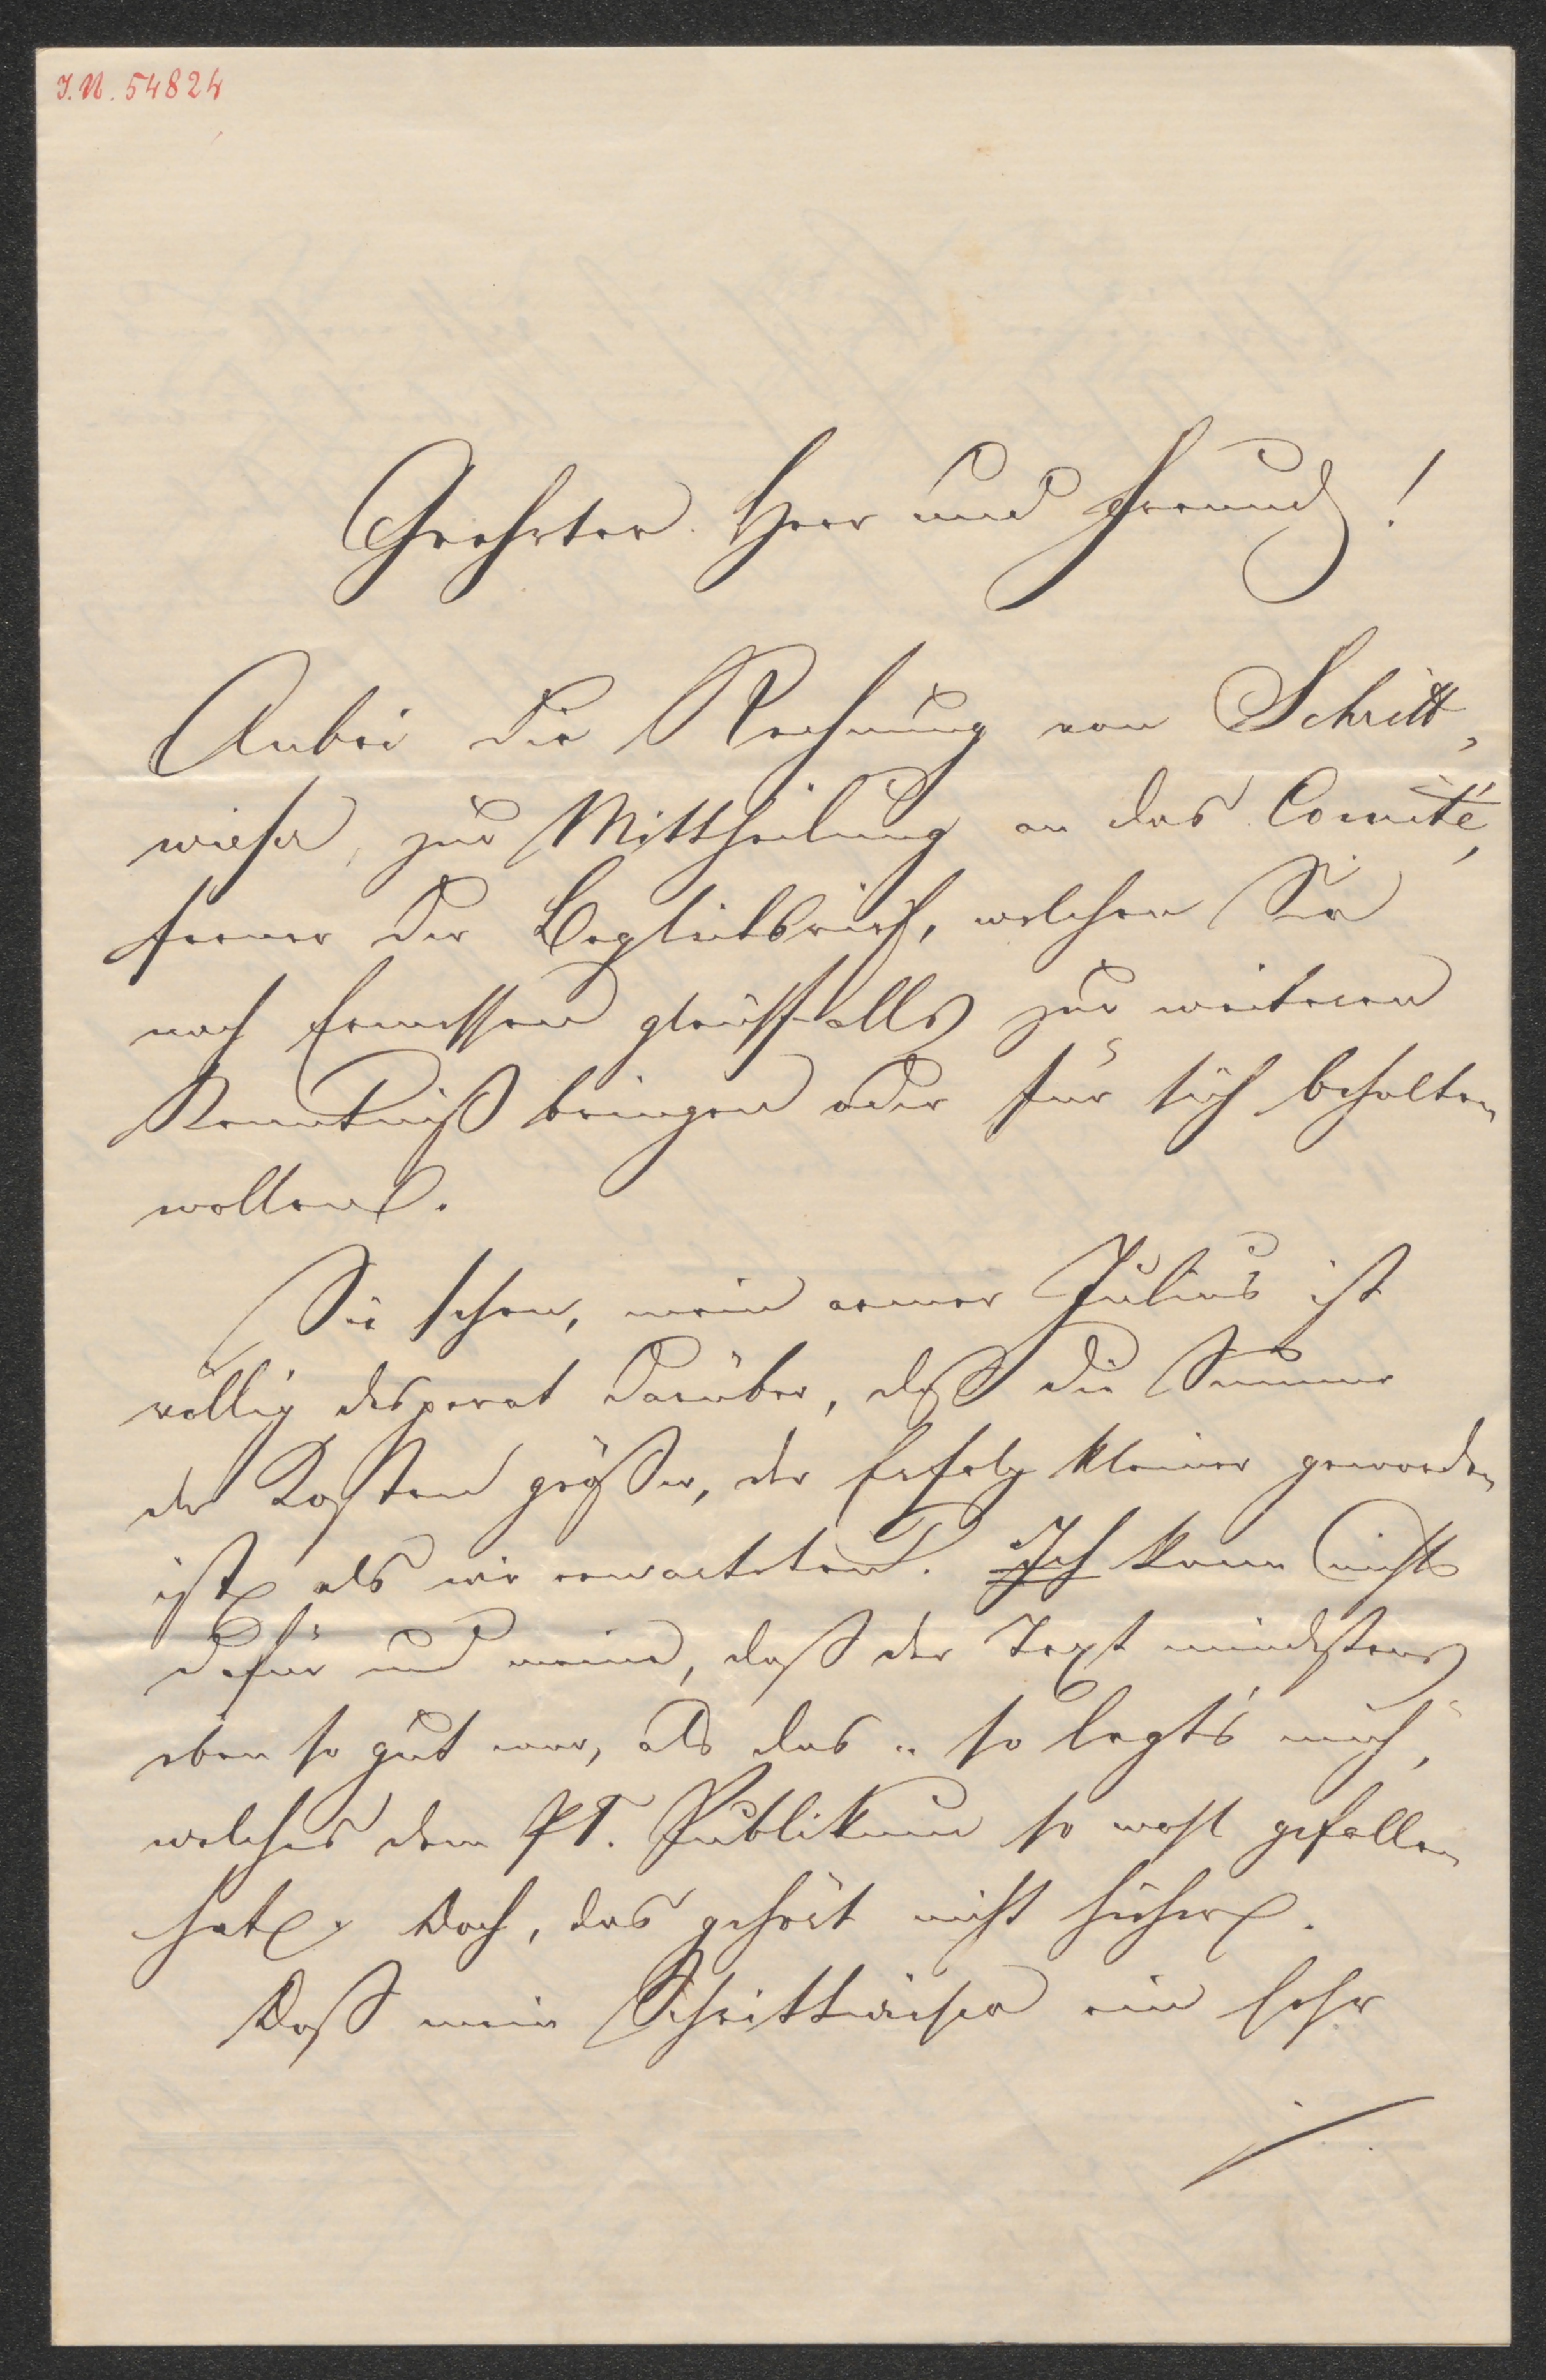 I.N. 54824
Geehrter Herr und Freund!
Anbei die Rechnung von Schritt,
wieser, zur Mittheilung an das Comité,
ferner der Begleitbrief, welchen Sie
nach Ermessen gleichfalls zur weiteren
Kenntniß bringen oder für sich behalten
wollen.
Sie sehen, mein armer Julius ist
völlig desperat darüber, daß die Summe
der Kosten größer, der Erfolg kleiner geworden
ist als wir erwarteten. Ich kann nichts
dafür und meine, daß der Text mindestens
eben so gut war, als das „so legt's mich",
welches dem PT. Publikum so wohl gefallen
hat. Doch, das gehört nicht hieher.
Daß mein Schrittwieser ein sehr